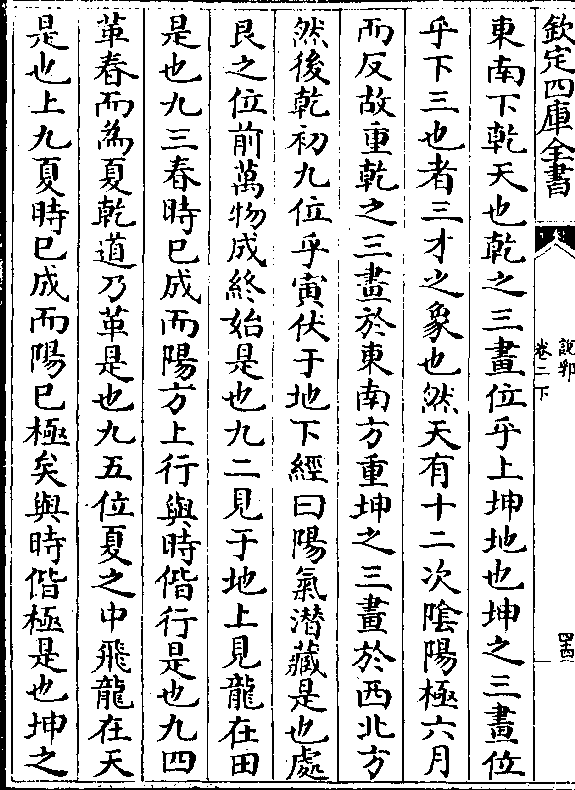 欽定四庫全書
說郛
卷二下
東南下乾天也乾之三畫位乎上坤地也坤之三畫位
乎下三也者三才之象也然天有十二次隂陽極六月
而反故重乾之三畫於東南方重坤之三畫於西北方
然後乾初九位乎寅伏于地下經曰陽氣潛藏是也處
艮之位前萬物成終始是也九二見于地上見龍在田
是也九三春時已成而陽方上行與時偕行是也九四
革春而為夏乾道乃革是也九五位夏之中飛龍在天
是也上九夏時已成而陽已極矣與時偕極是也坤之